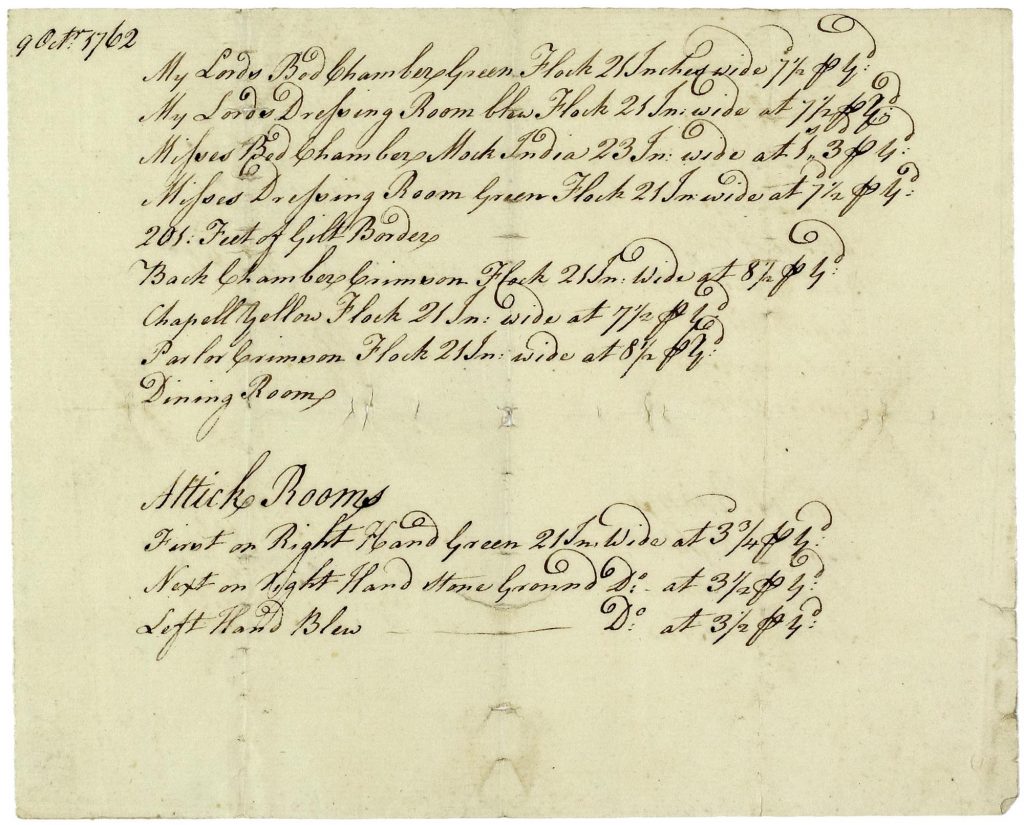 9 Octr. 1762
My Lords Bed Chamber Green Flock 21 Inches wide 7½d ⅌ Yd:
My Lords Dressing Room blew Flock 21 In: wide at 7½ ⅌ Yd:
Misses Bed Chamber Mock India 23 In: wide at 1s,,3d ⅌ Yd:
Misses Dressing Room Green Flock 21 In: wide at 7½d ⅌ Yd:
201: Feet of Gilt Border
Back Chamber Crimson Flock 21 In: Wide at 8½ ⅌ Yd:
Chapell Yellow Flock 21 In: wide at 7½ ⅌ Yd:
Parlor Crimson Flock 21 In: wide at 8½ ⅌ Yd:
Dining Room
Attick Rooms
First on Right Hand Green 21 In: Wide at 3¾d ⅌ Yd:
Next on right Hand Stone Ground Do: at 3½ ⅌ Yd:
Left Hand Blew — Do: at 3½ ⅌ Yd: